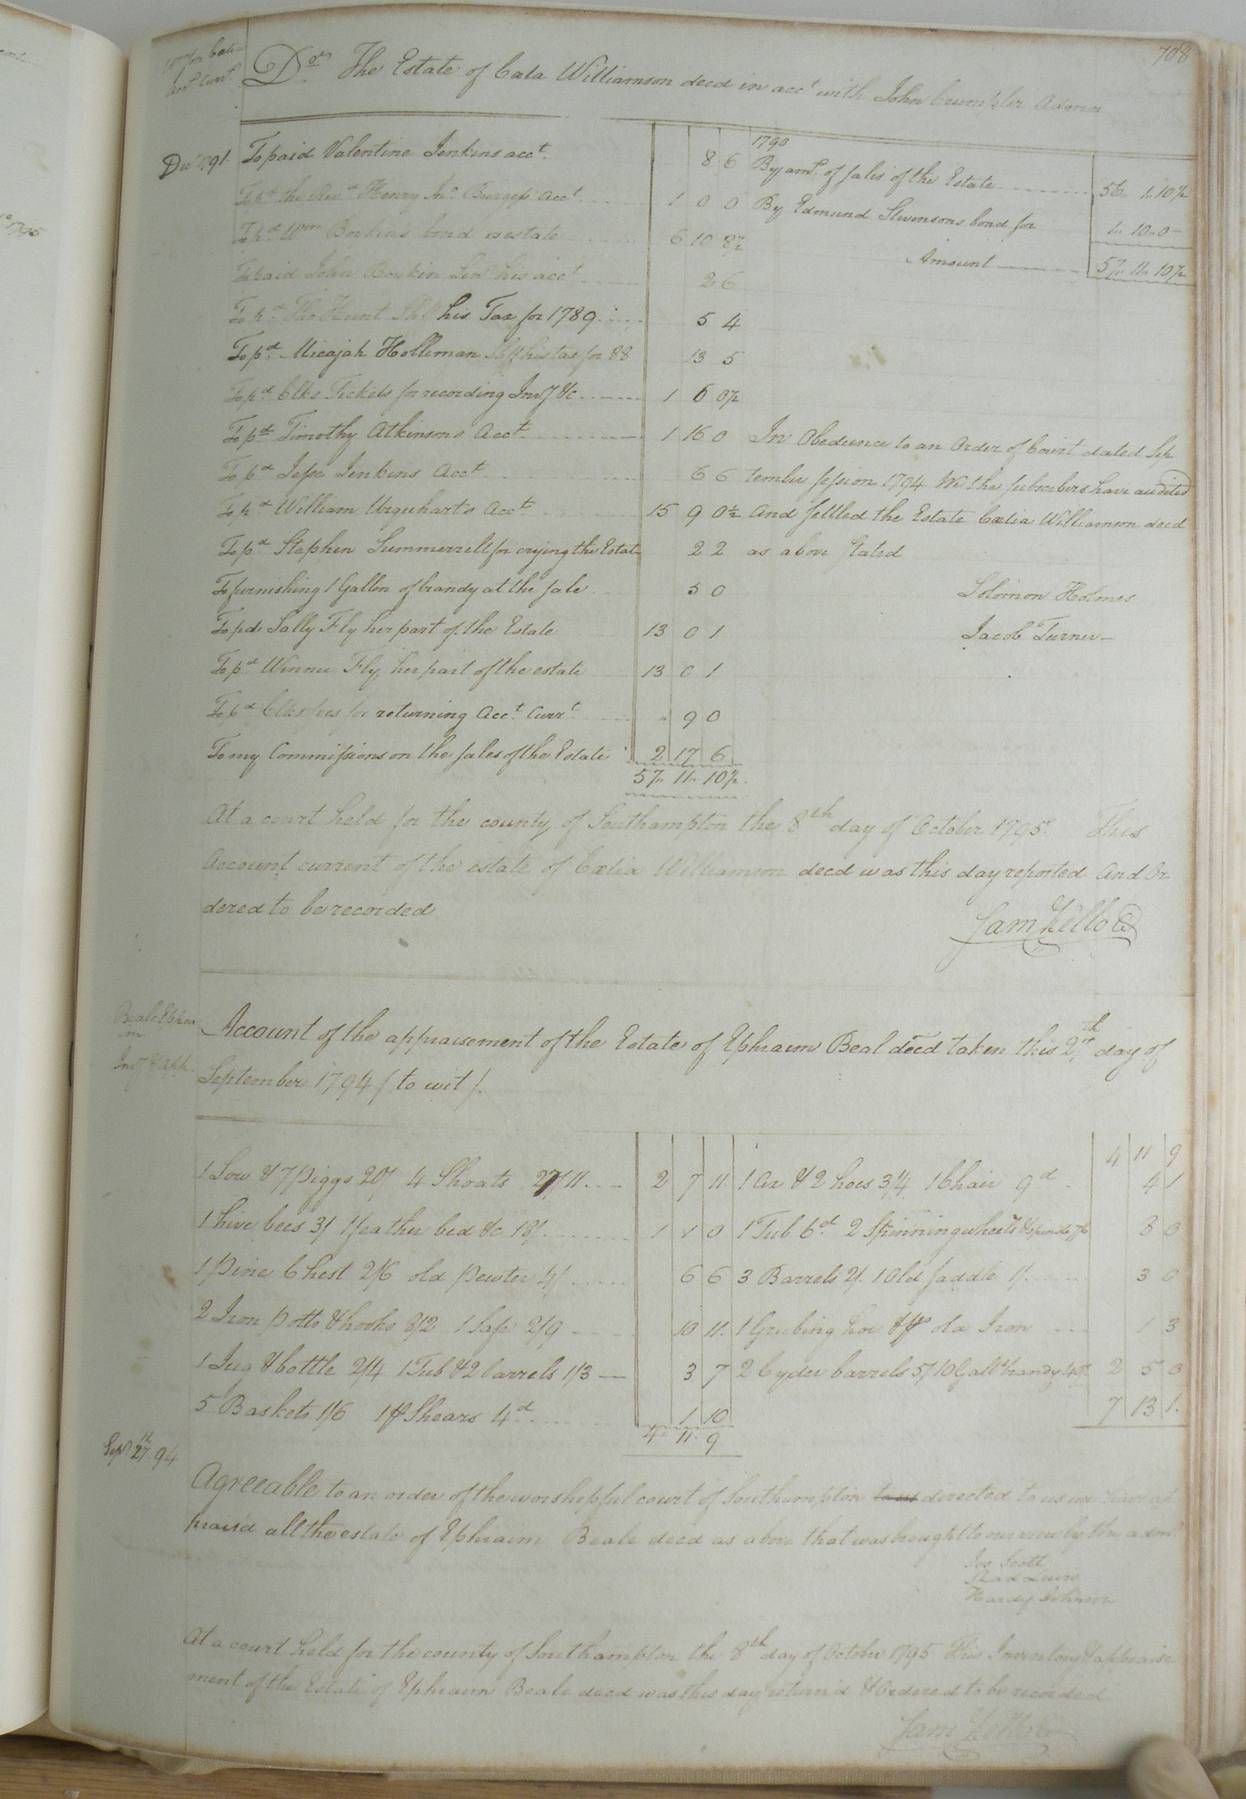 708
Dr. The Estate of Cala Williamson decd in acct with John Crumpler Admr
Decr 1791 To paid Valentine Jenkins acct. 8 6
To pd the Revd Henry Jno Burgess acct 1 0 0
To pd Wm Bookins bond on estate 6 10 8½
To paid John Bowkin Senr his acct 2 6
To pd Tho Hunt Shff his Tax for 1789 5 4
To pd Micajah Holliman Shff his tax for 88 13 5
To pd Clks Tickets for recording Invy &c 1 6 0½
To pd Timothy Atkinsons Acct 1 16 0
To pd Jesse Jenkins Acct 6 6
To pd William Urquhart's Acct 15 9 0½
To pd Stephen Summerrell for crying the Estate 2 2
To furnishing 1 Gallon of brandy at the sale 5 0
To pd. Sally Fly her part of the Estate 13 0 1
To pd Winnie Fly her part of the estate 13 0 1
To pd Clks fees for returning Acct Currt 9 0
To my Commissions on the sales of the Estate 2 17 6
57 11 10½
1790
By amt of sales of the Estate 56 1 10½
By Edmund Stevensons bond for 1 10 0
Amount 57 11 10½
In Obedience to an Order of Court dated Sep
tember session 1794 We the subscribers have audited
And settled the Estate Cœlia Williamson decd
as above stated
Solomon Holmes
Jacob Turner
At a court held for the county of Southampton the 8th day of October 1795. This
Account current of the estate of Cœlia Williamson decd was this day reported And Or
dered to be recorded
Sam Kello C
Beale Ephra
im
Invy & app.
Account of the appraisement of the Estate of Ephraim Beal decd taken this 27th day of
September 1794 (to wit)
1 Sow & 7 Piggs 20/ 4 Shoats 27/11 2 7 11
1 hive bees 3/ 1 feather bed &c 18/ 1 1 0
1 Pine Chest 2/6 old pewter 4/ 6 6
2 Iron Potts & hooks 8/2 1 Safe 2/9 10 11
1 Jug & bottle 2/4 1 Tub & 2 barrels 1/3 3 7
5 Baskets 1/6 1 pr Shears 4d 1 10
4 11 9
4 11 9
1 Ax & 2 hoes 3/4 1 Chair 9d 4 1
1 Tub 6d 2 Spinning wheels & spindle 7/6 8 0
3 Barrels 2/ 1 Old saddle 1/ 3 0
1 Grubing hoe & pr old Iron 1 3
2 Cyder barrels 5/ 10 Galls brandy 40/ 2 5 0
7 13 1
Sept 27th 94
Agreeable to an order of the worshepful court of Southampton to us directed to us we have ap
praisd all the estate of Ephraim Beale decd as above that was brought to our view by the admr
Jos Scott
Hardy Johnson
At a court held for the county of Southampton the 8th day of October 1795 This Inventory & appraise
ment of the Estate of Ephraim Beale decd was this day return'd & Ordered to be recorded
Sam Kello C